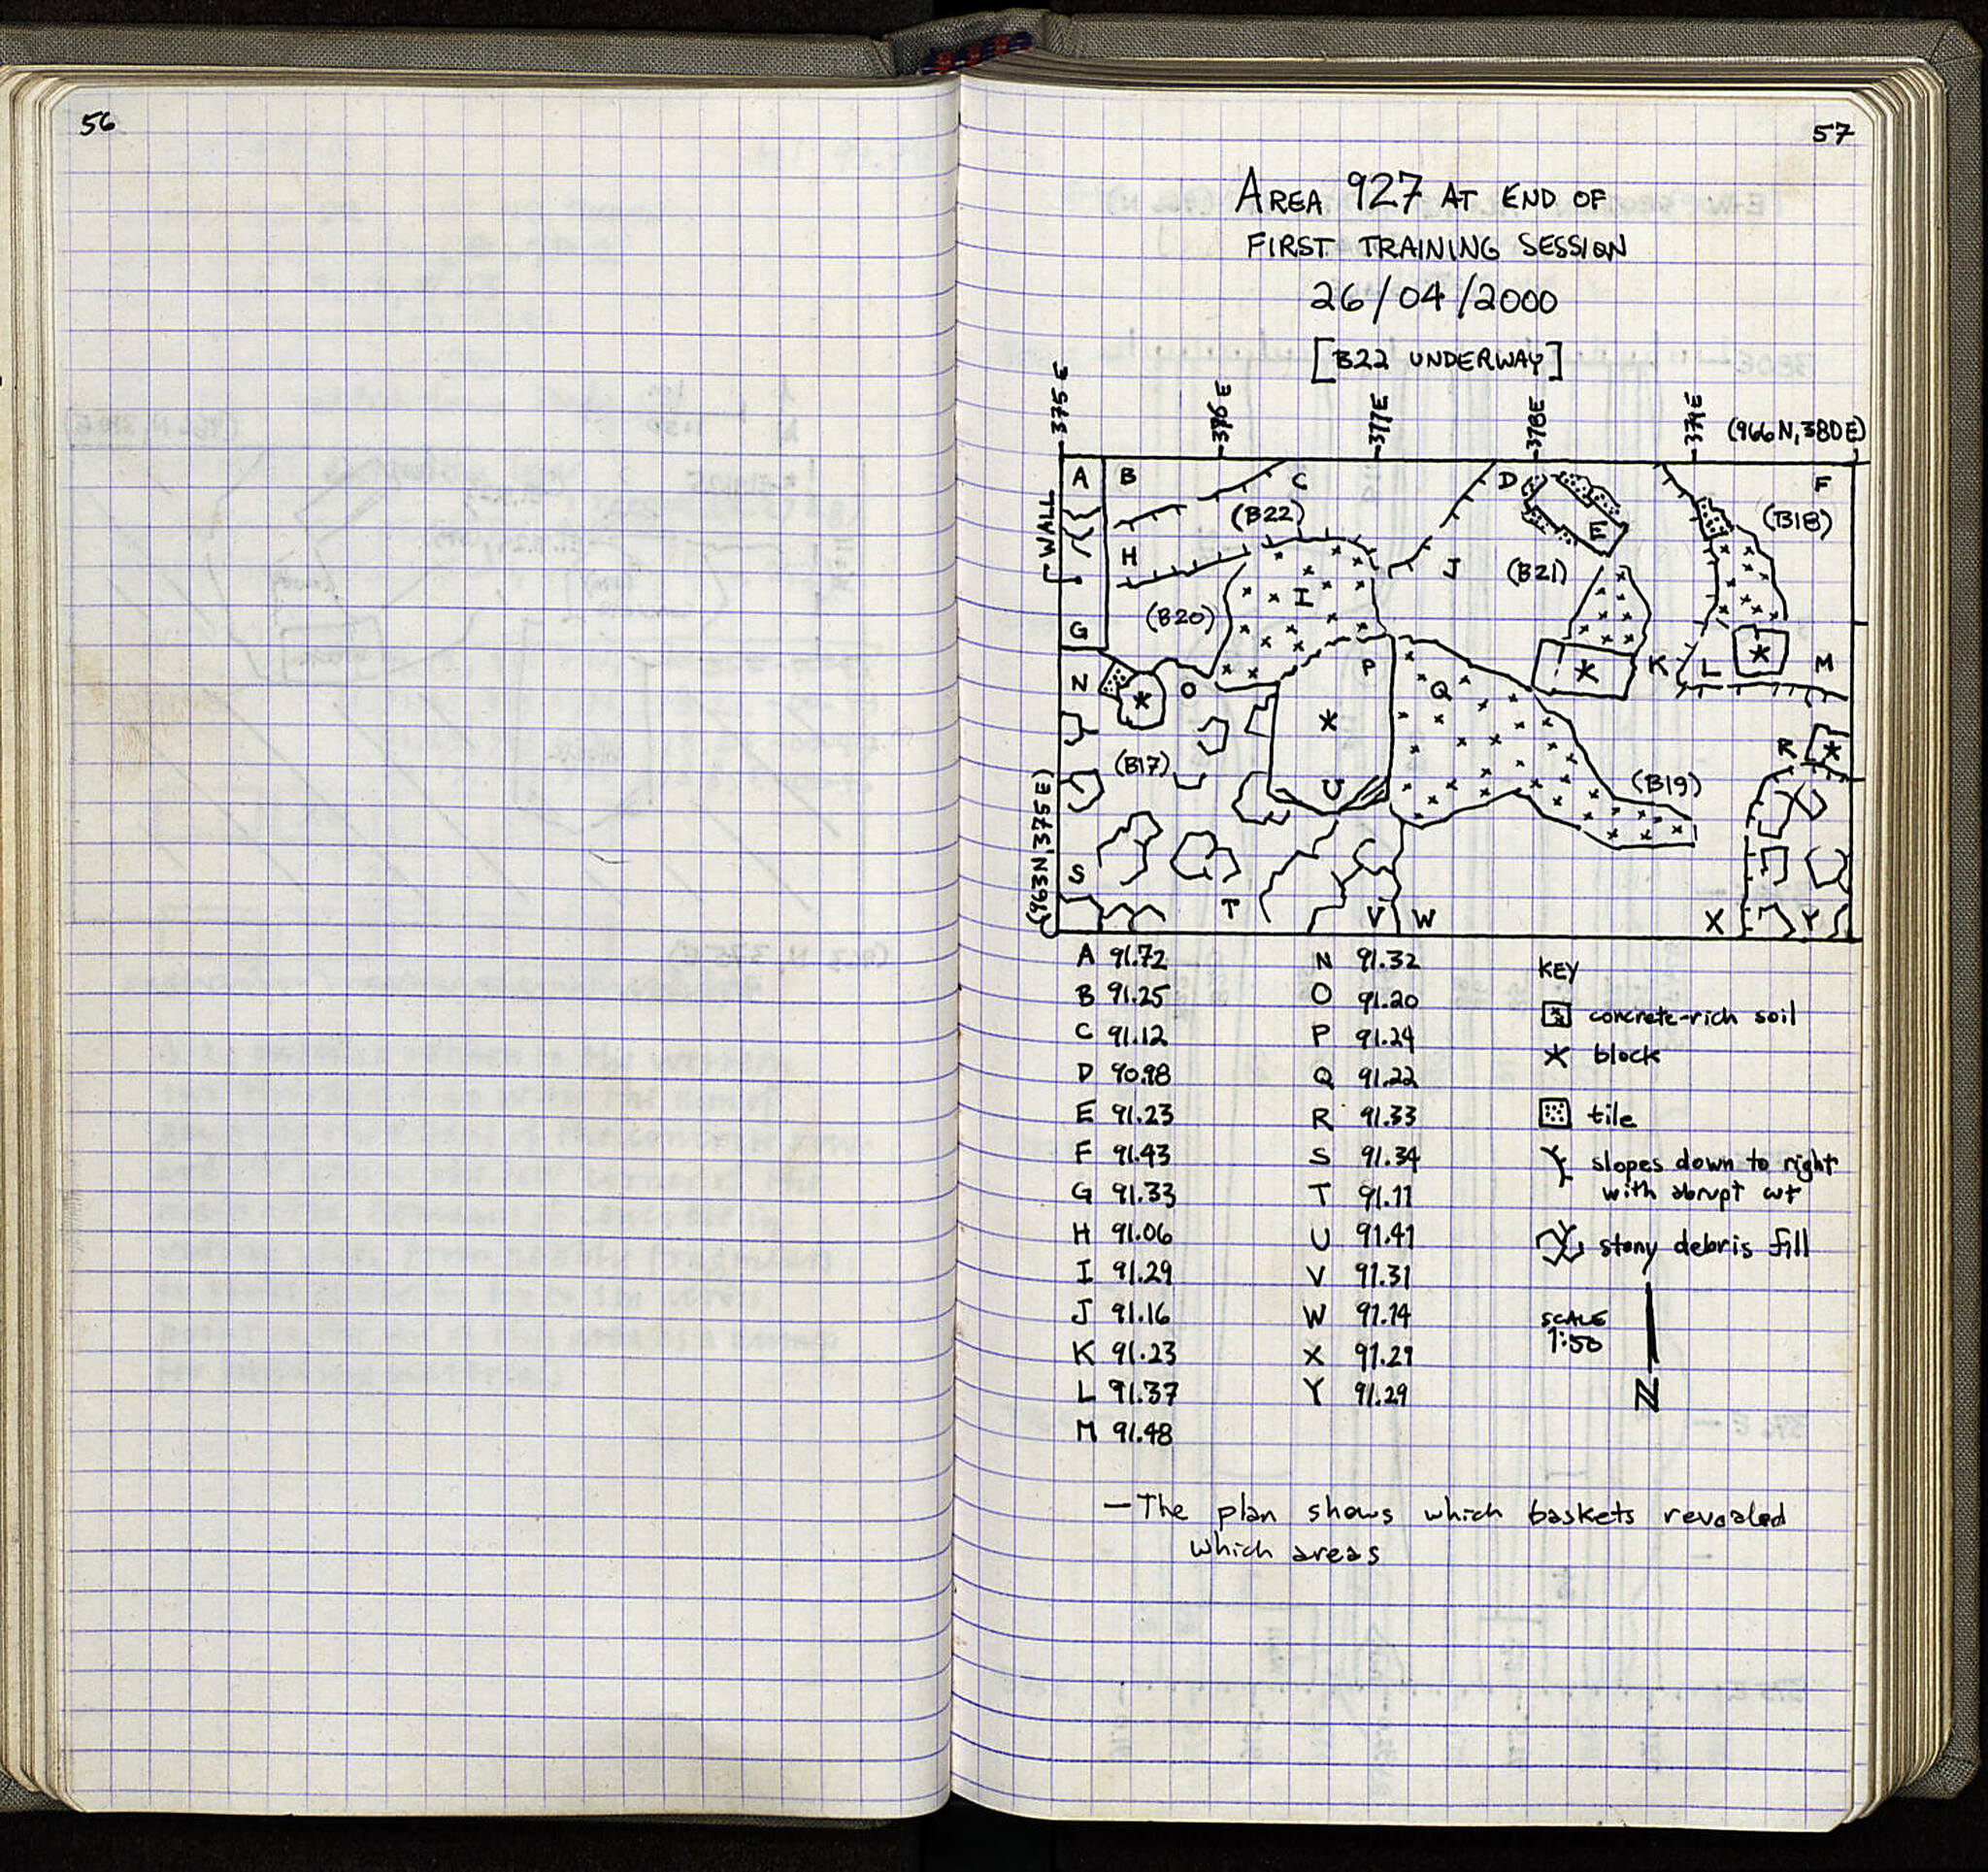 56
57
AREA 927 AT END OF
FIRST TRAINING SESSION
26/04/2000
[B22 UNDERWAY]
375 E
376 E
377E
378E
379E
(966 N, 380 E)
A
B
C
D
E
F
(B22)
(B18)
WALL
H
I
J
(B21)
(B20)
G
N
O
P
Q
K
L
M
(B17)
R
U
(B19)
(963N, 375E)
S
T
V
W
X
Y
A 91.72
B 91.25
C 91.12
D 90.98
E 91.23
F 91.43
G 91.33
H 91.06
I 91.29
J 91.16
K 91.23
L 91.37
M 91.48
N 91.32
O 91.20
P 91.24
Q 91.22
R 91.33
S 91.34
T 91.11
U 91.41
V 91.31
W 91.14
X 91.29
Y 91.29
KEY
concrete-rich soil
block
tile
slopes down to right
with abrupt cut
stony debris fill
SCALE
1:50
N
— The plan shows which baskets revealed
which areas